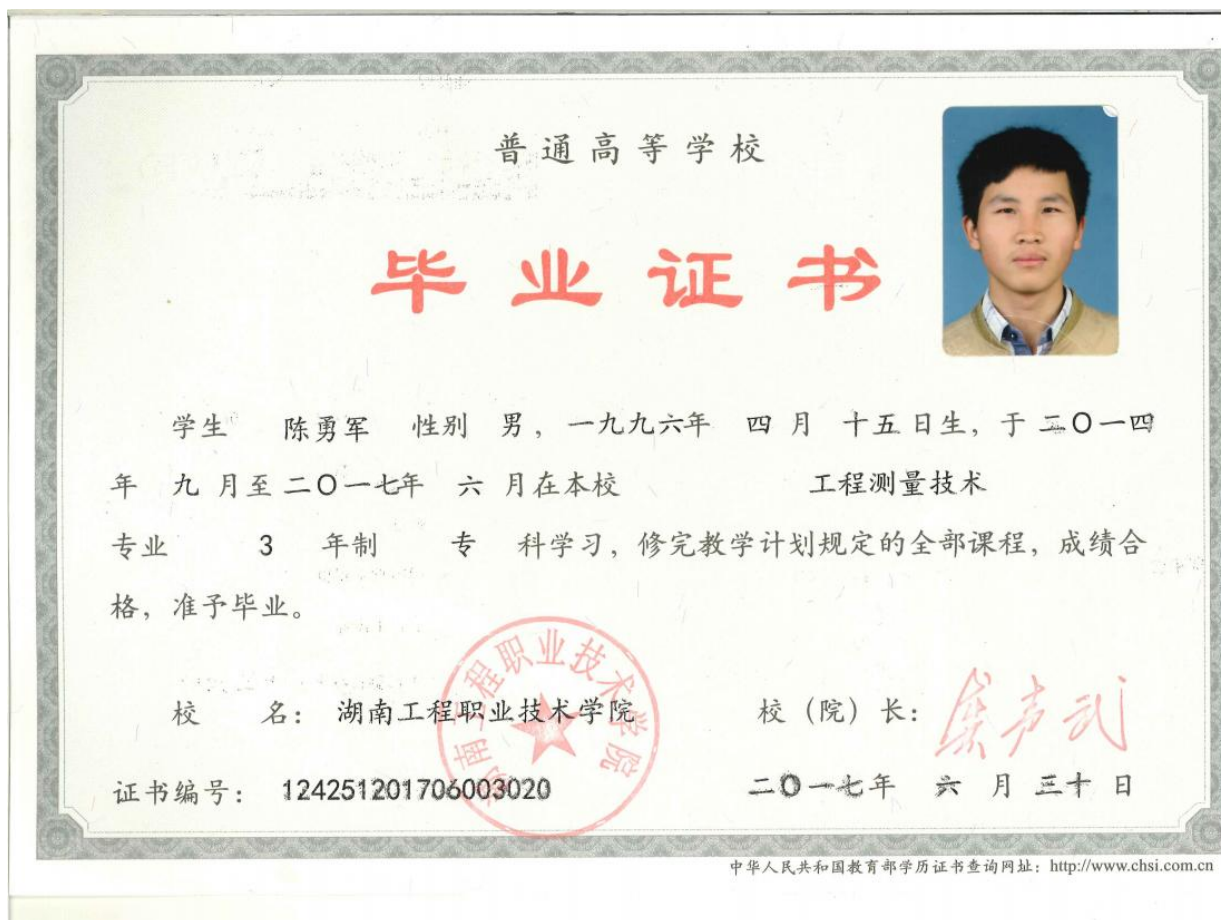 普通高等学校
毕业证书
学生 陈勇军 性别 男，一九九六年 四 月 十五日生，于 二〇一四
年 九 月至二〇一七年 六 月在本校 工程测量技术
专业 3 年制 专 科学习，修完教学计划规定的全部课程，成绩合
格，准予毕业。
湖南工程职业技术学院
校 名： 湖南工程职业技术学院 校（院）长：
证书编号： 124251201706003020 二〇一七年 六 月 三十 日
中华人民共和国教育部学历证书查询网址：http://www.chsi.com.cn